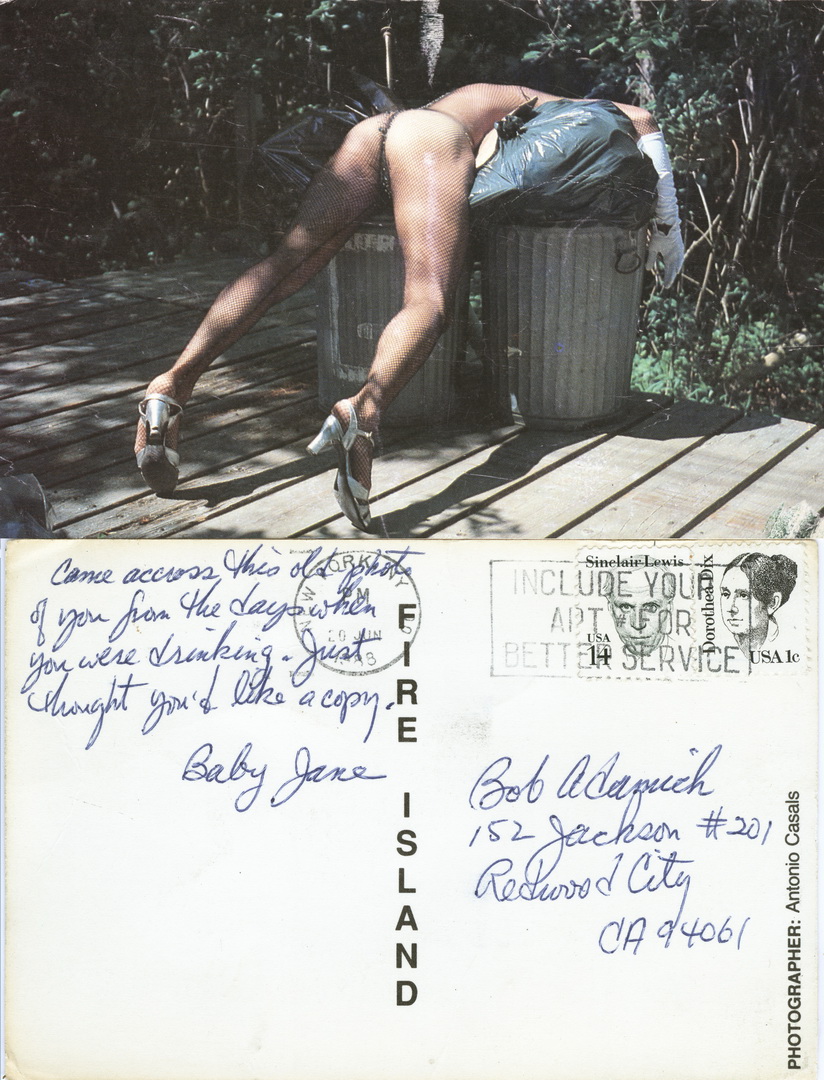 Came accross this old photo
of you from the days when
you were drinking. Just
thought you'd like a copy.
Baby Jane
FIRE ISLAND
INCLUDE YOUR
APT # OR
BETTER SERVICE
Sinclair Lewis
USA
14
Dorothea Dix
USA 1c
Bob Adamich
152 Jackson #201
Redwood City
CA 94061
PHOTOGRAPHER: Antonio Casals